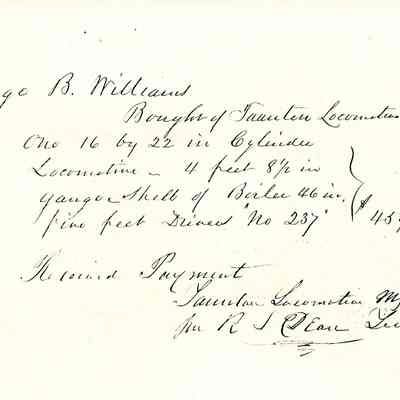 ge B. Williams
Bought of Taunton Locomotive
One 16 by 22 in Cylinder
Locomotive - 4 feet 8½ in
gauge - Shell of Boiler 46 in.
five feet Drivers "No 237" $45
Received Payment
Taunton Locomotive M
per R S Dean